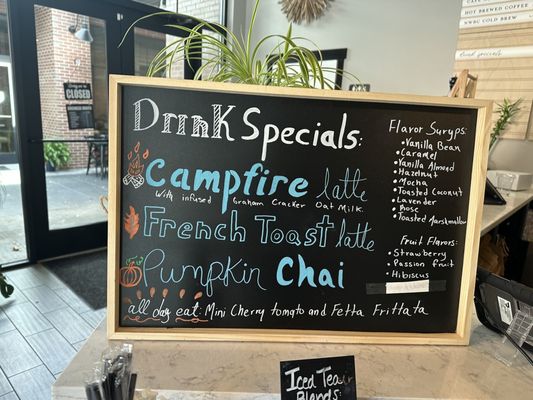 CLOSED
HOT BREWED COFFEE
NWBG COLD BREW
Drink Specials:
Campfire latte
With infused Graham Cracker Oat Milk.
French Toast latte
Pumpkin Chai
all day eat: Mini Cherry tomato and Fetta Frittata
Flavor Suryps:
• Vanilla Bean
• Caramel
• Vanilla Almond
• Hazelnut
• Mocha
• Toasted Coconut
• Lavender
• Rose
• Toasted Marshmallow
Fruit Flavors:
• Strawberry
• Passion Fruit
• Hibiscus
Iced Tea
Blends: